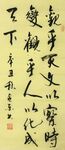 觀乎天文以察時
變觀乎人文以化成
天下